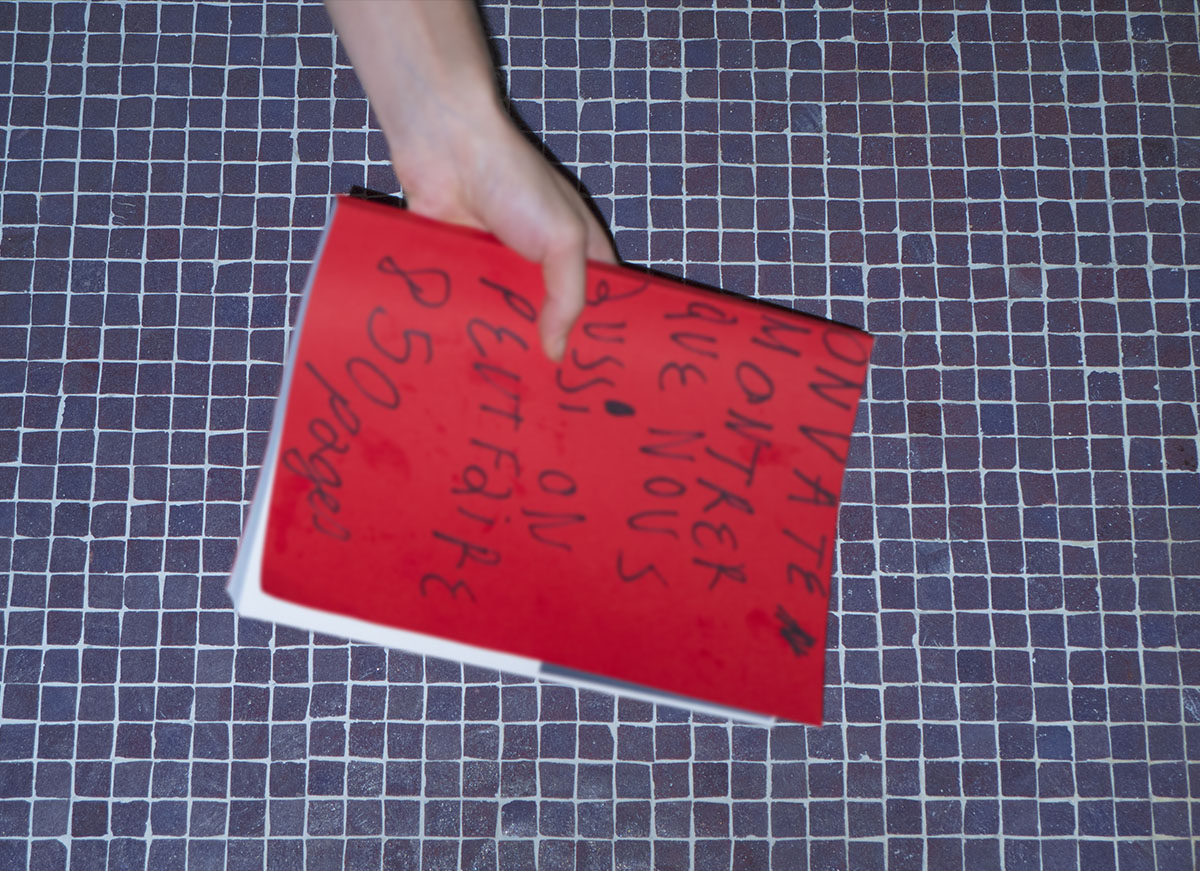 ON VA TE
MONTRER
QUE NOUS
aUSSI ON
PEUT FaiRE
850
pages